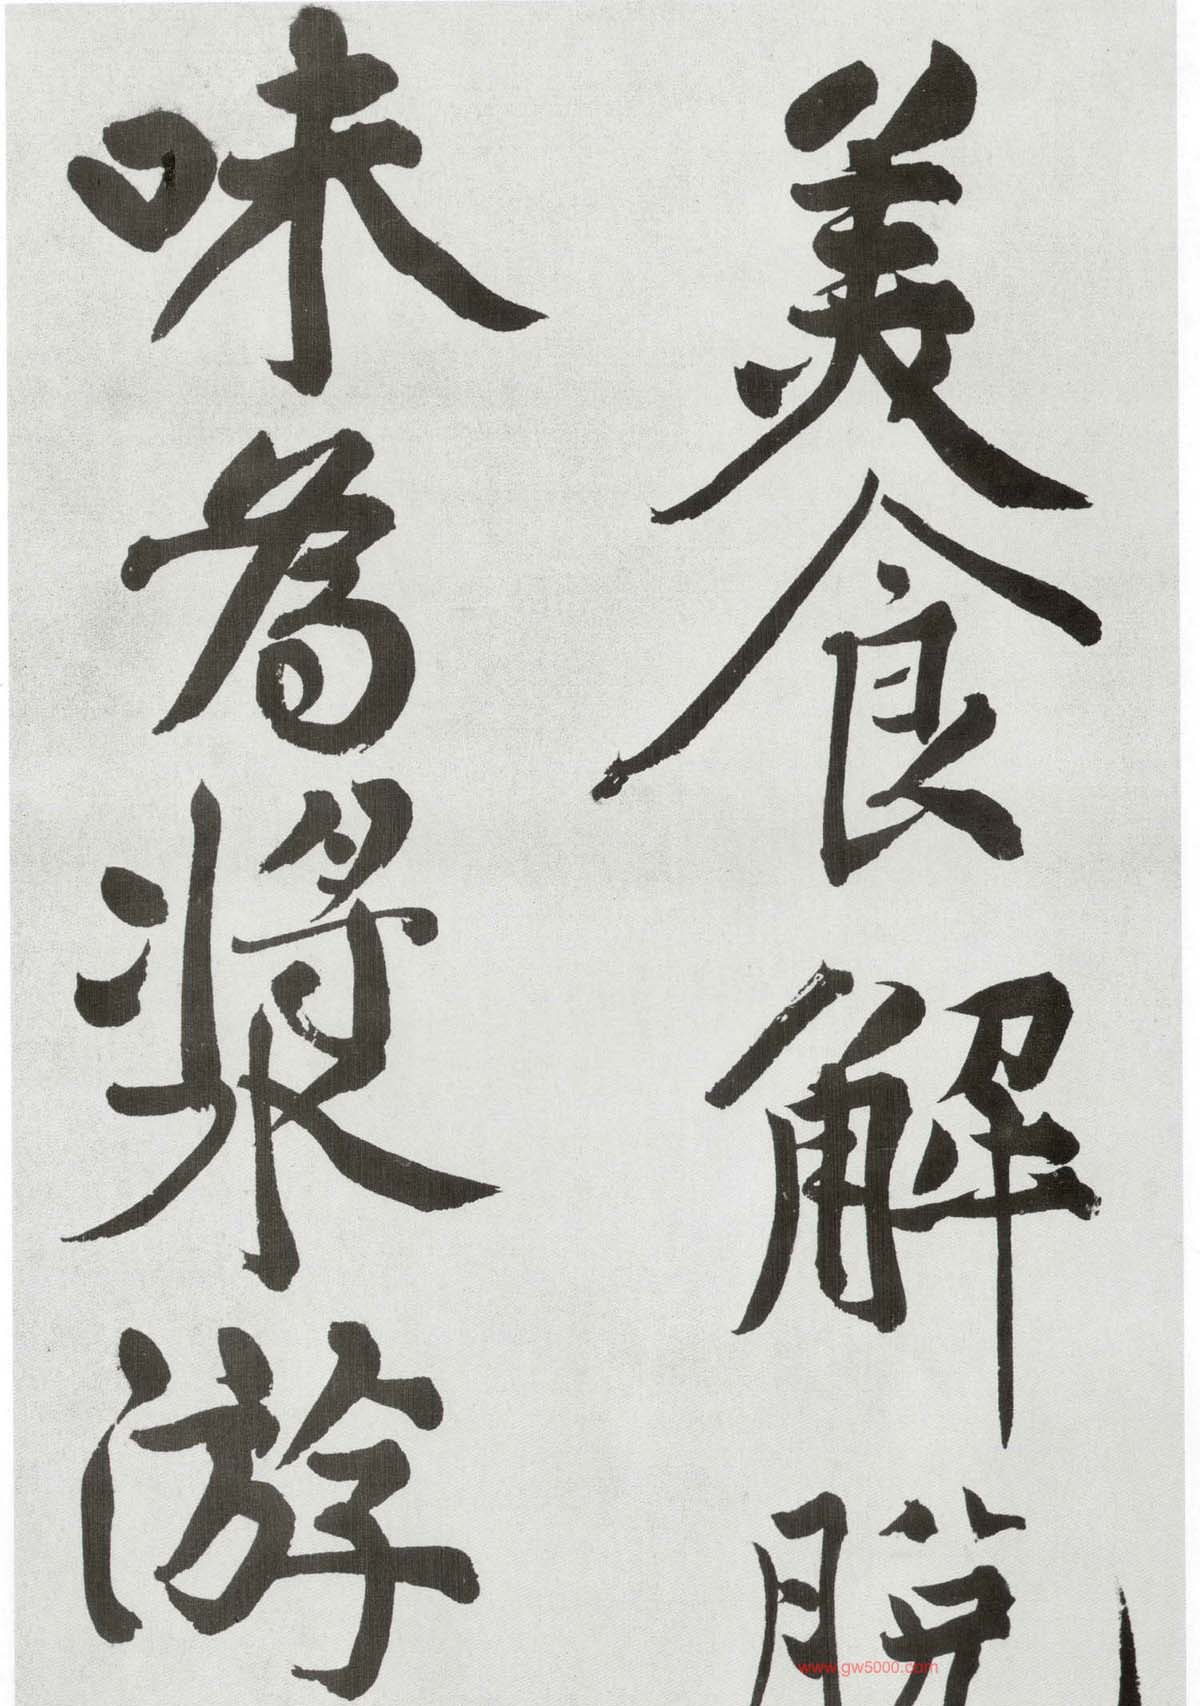 美食解脫
味為漿游
www.gw5000.com